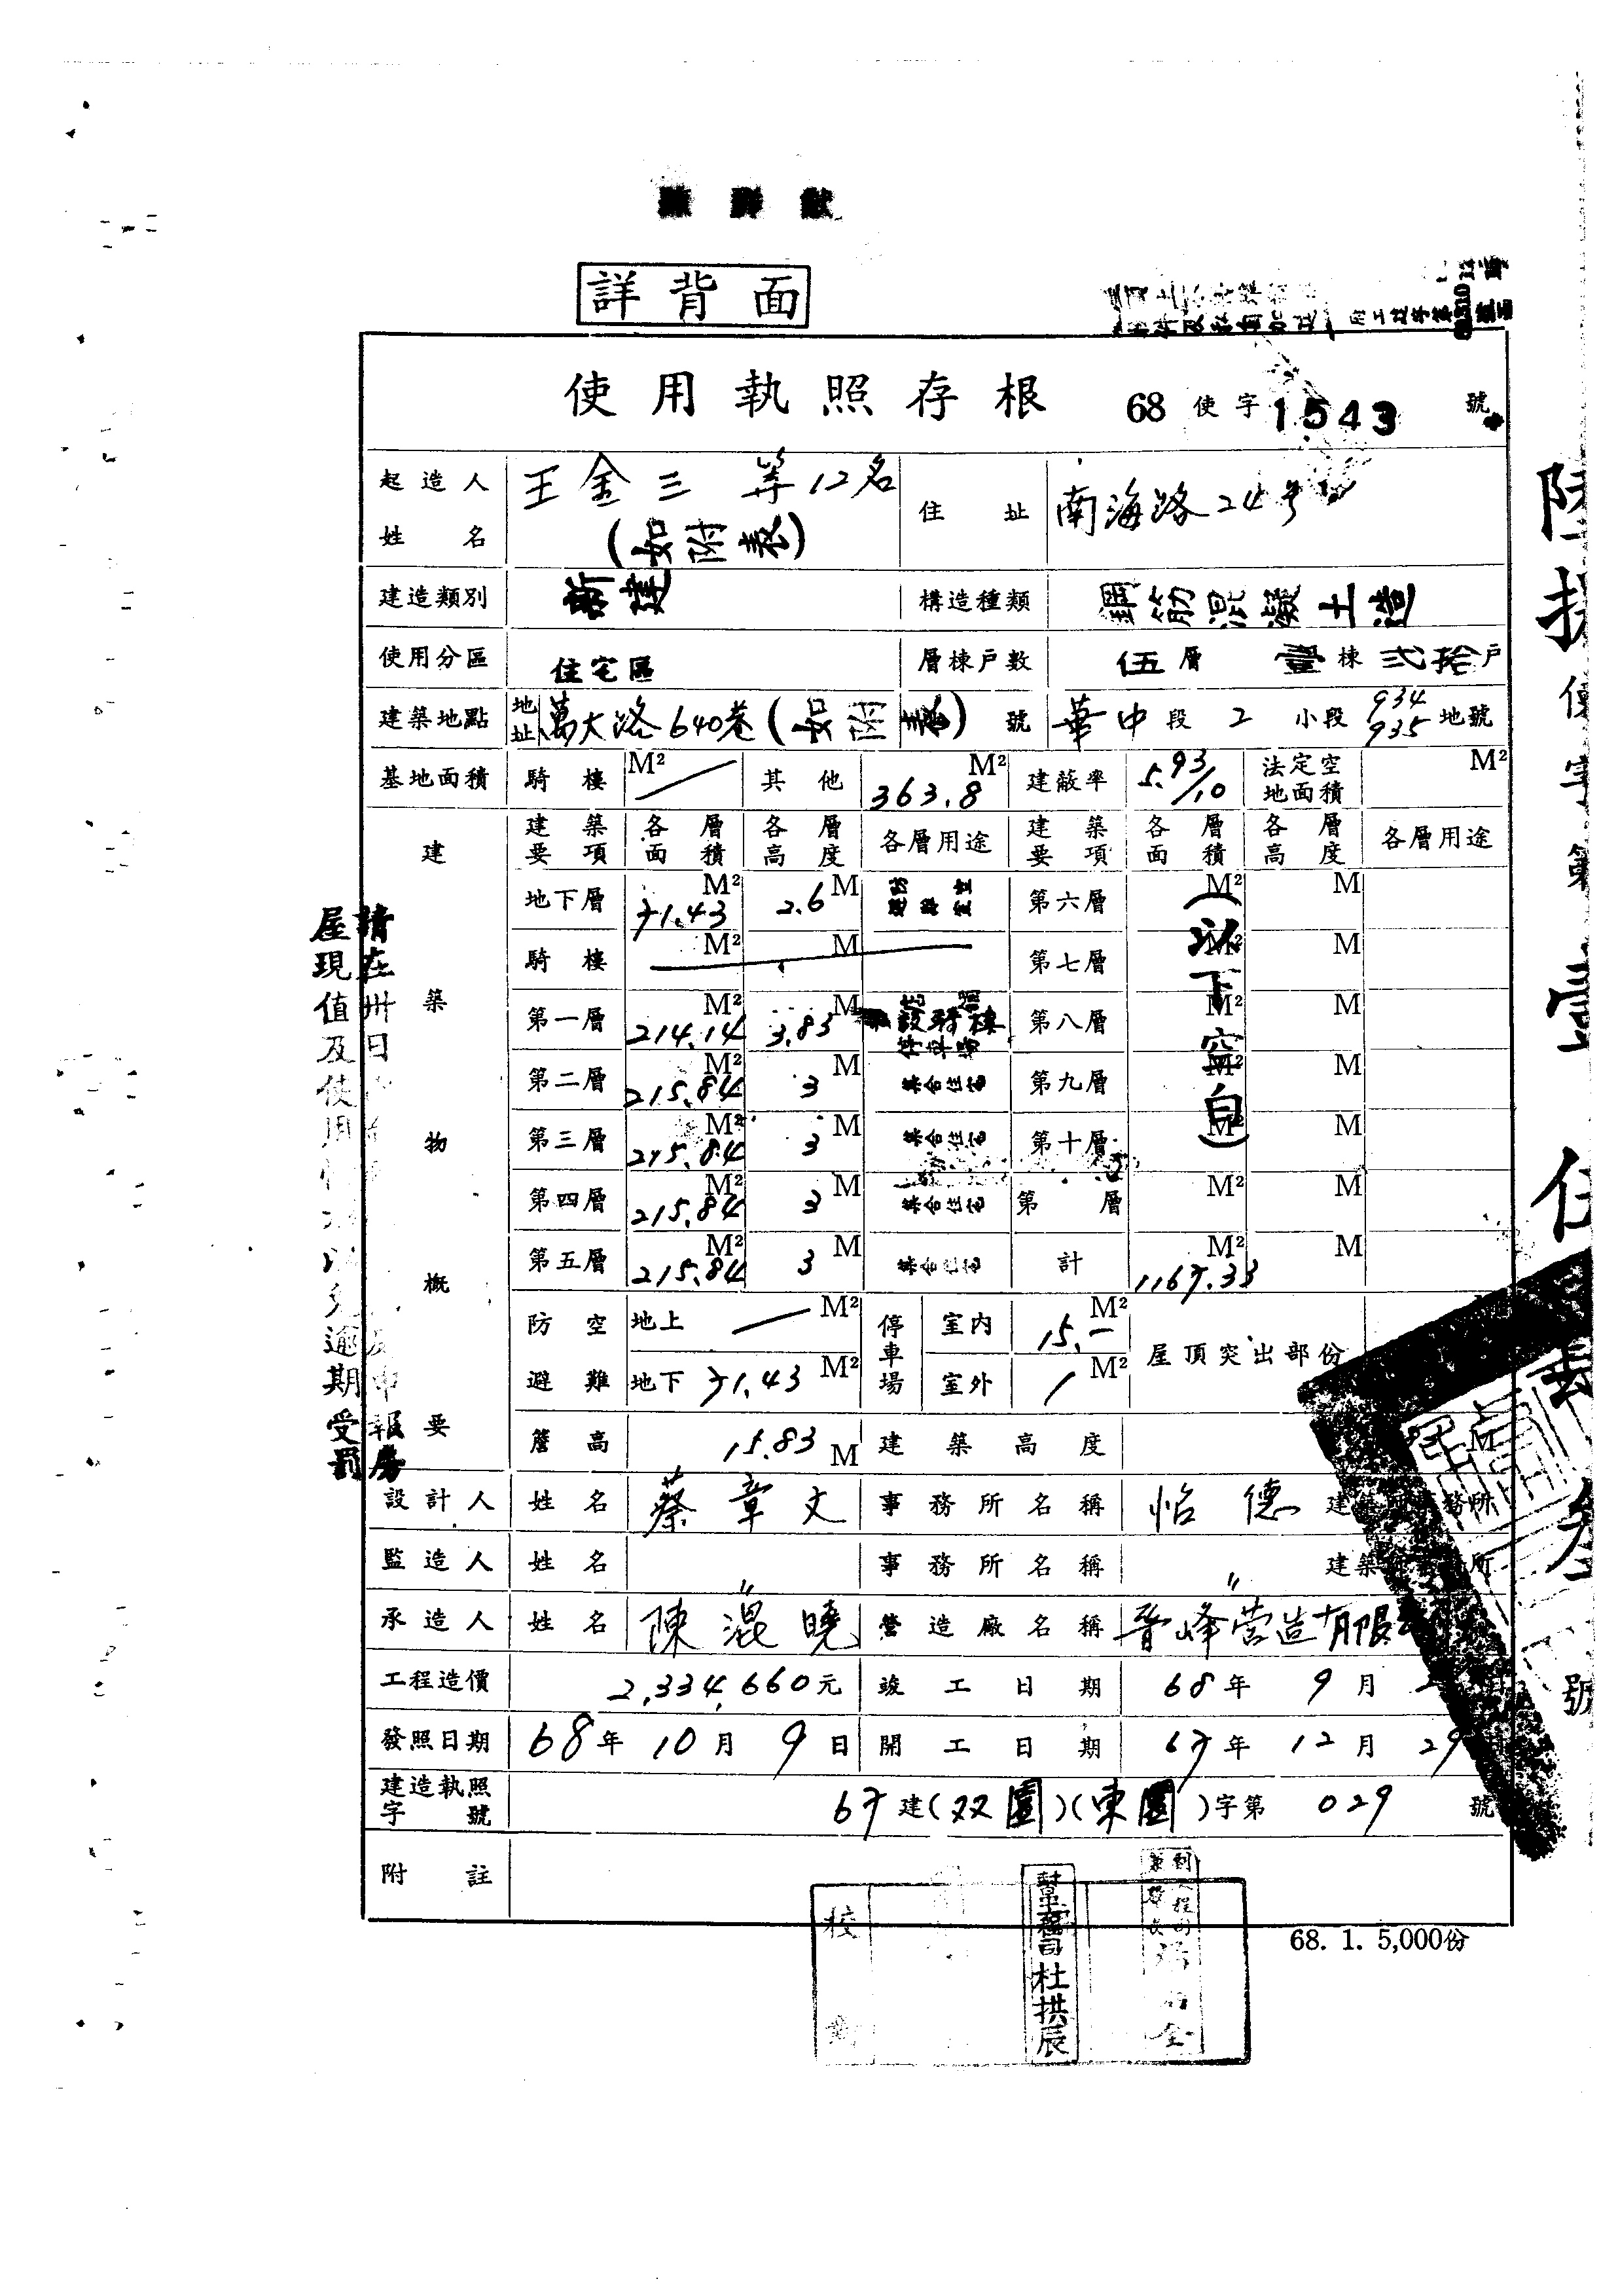 詳背面
使用執照存根 68 使字 1543 號
起造人姓名 王金三 等12名 (如附表) 住址 南海路24号
建造類別 新建 構造種類 鋼筋混凝土造
使用分區 住宅區 層棟戶數 伍層 壹棟 弍拾戶
建築地點 地址 萬大路640巷( 附表)號 華中段 2 小段 934 935 地號
基地面積 騎樓 M² 其他 363.8 M² 建蔽率 5.93/10 法定空地面積 M²
建築物概要
建築要項 各層面積 各層高度 各層用途 建築要項 各層面積 各層高度 各層用途
地下層 71.43 M² 2.6 M 第六層 M² M
騎樓 M² M 第七層 M² M
第一層 214.14 M² 3.83 M 第八層 M² M
第二層 215.84 M² 3 M 集合住宅 第九層 M² M
第三層 215.84 M² 3 M 集合住宅 第十層 M² M
第四層 215.84 M² 3 M 集合住宅 第 層 M² M
第五層 215.84 M² 3 M 集合住宅 計 1167.33 M² M
(以下空白)
防空避難 地上 M² 停車場 室內 15.— M² 屋頂突出部份
地下 71.43 M² 室外 M²
簷高 15.83 M 建築高度 M
設計人 姓名 蔡章文 事務所名稱 怡德 建築師事務所
監造人 姓名 〃 事務所名稱 〃 建築師事務所
承造人 姓名 陳混曉 營造廠名稱 晉峰营造有限
工程造價 2,334,660元 竣工日期 68年 9月
發照日期 68年 10月 9日 開工日期 67年 12月 29
建造執照字號 67建(双園)(東園)字第 029 號
附註
68. 1. 5,000份
校
杜拱辰
請在卅日
申報房
屋現值及使用
逾期受罰
陸
使字第
壹
伍
號